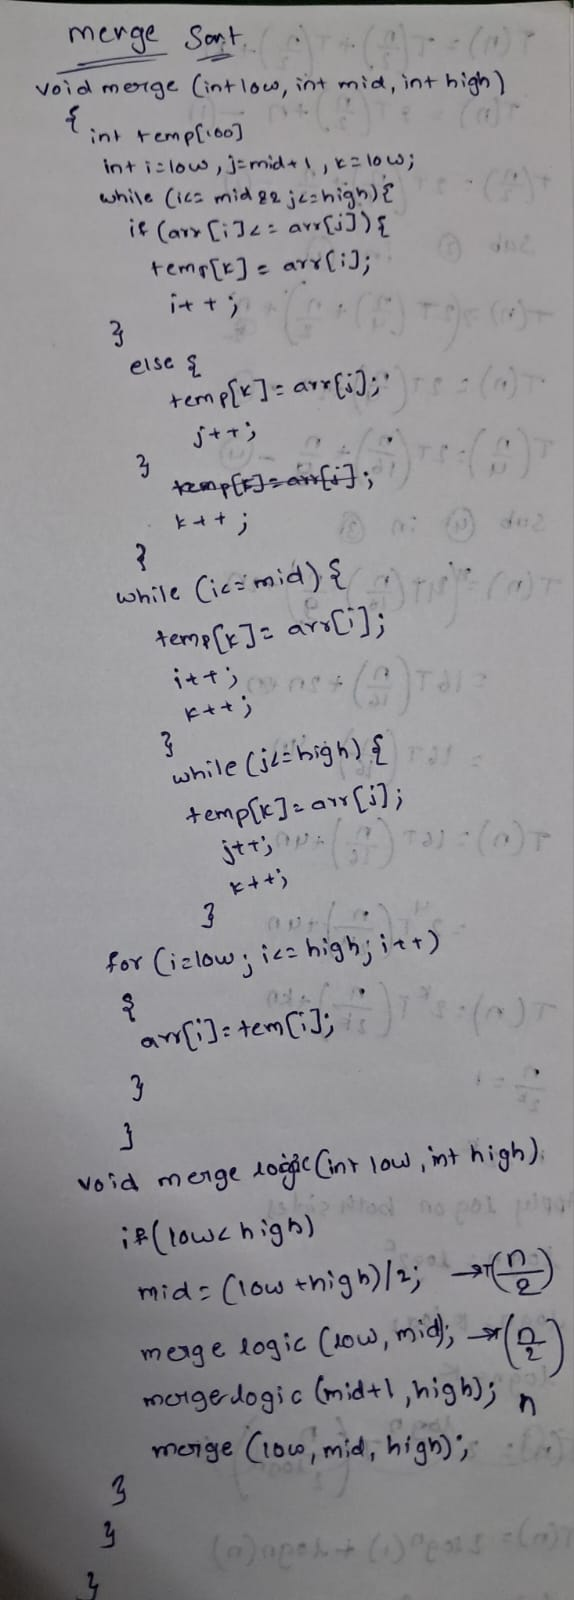 merge Sort
void merge (int low, int mid, int high)
{
int temp[100]
int i=low, j=mid+1, k=low;
while (i<= mid && j<=high){
if (arr[i]<= arr[j]){
temp[k] = arr[i];
i++;
}
else {
temp[k]= arr[j];
j++;
}
temp[k]=arr[i];
k++;
}
while (i<=mid) {
temp[k]= arr[i];
i++;
k++;
}
while (j<=high) {
temp[k]=arr[j];
j++;
k++;
}
for (i=low; i<= high; i++)
{
arr[i]=tem[i];
}
}
void merge logic (int low, int high).
if(low<high)
mid= (low+high)/2; →T(n/2)
merge logic (low, mid); →T(n/2)
mergelogic (mid+1, high); n
merge (low, mid, high);
}
}
}